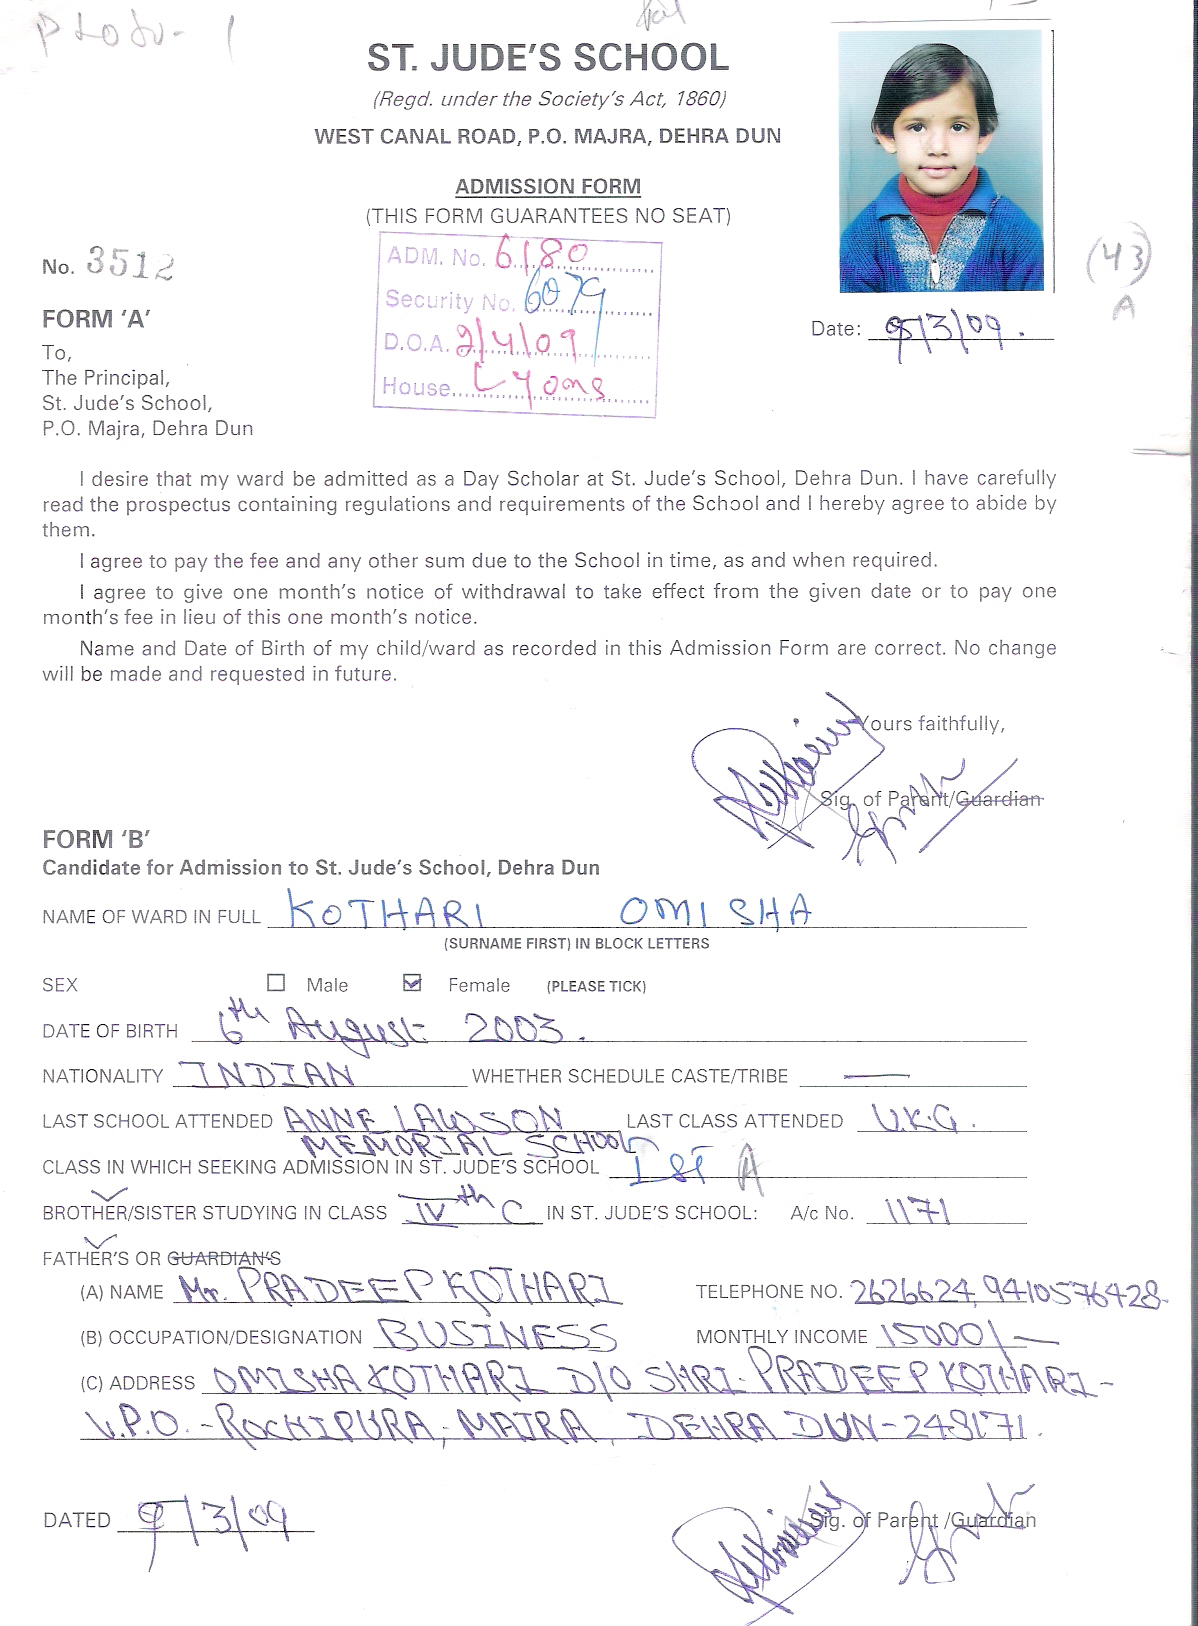 Photo - 1
ST. JUDE'S SCHOOL
(Regd. under the Society's Act, 1860)
WEST CANAL ROAD, P.O. MAJRA, DEHRA DUN
ADMISSION FORM
(THIS FORM GUARANTEES NO SEAT)
No. 3512
ADM. No. 6180
Security No. 6079
D.O.A. 2/4/09
House Lyons
(43)
A
Date: 9/3/09.
FORM 'A'
To,
The Principal,
St. Jude's School,
P.O. Majra, Dehra Dun
I desire that my ward be admitted as a Day Scholar at St. Jude's School, Dehra Dun. I have carefully
read the prospectus containing regulations and requirements of the School and I hereby agree to abide by
them.
I agree to pay the fee and any other sum due to the School in time, as and when required.
I agree to give one month's notice of withdrawal to take effect from the given date or to pay one
month's fee in lieu of this one month's notice.
Name and Date of Birth of my child/ward as recorded in this Admission Form are correct. No change
will be made and requested in future.
Yours faithfully,
Sig. of Parent/Guardian
FORM 'B'
Candidate for Admission to St. Jude's School, Dehra Dun
NAME OF WARD IN FULL KOTHARI OMISHA
(SURNAME FIRST) IN BLOCK LETTERS
SEX Male Female (PLEASE TICK)
DATE OF BIRTH 6th August 2003.
NATIONALITY INDIAN WHETHER SCHEDULE CASTE/TRIBE —
LAST SCHOOL ATTENDED ANNE LAWSON LAST CLASS ATTENDED U.K.G.
MEMORIAL SCHOOL
CLASS IN WHICH SEEKING ADMISSION IN ST. JUDE'S SCHOOL Ist A
BROTHER/SISTER STUDYING IN CLASS IVth C IN ST. JUDE'S SCHOOL: A/c No. 1171
FATHER'S OR GUARDIAN'S
(A) NAME Mr. PRADEEP KOTHARI TELEPHONE NO. 2626624, 9410576428
(B) OCCUPATION/DESIGNATION BUSINESS MONTHLY INCOME 15000/-
(C) ADDRESS OMISHA KOTHARI D/O SHRI. PRADEEP KOTHARI-
V.P.O. - ROCHIPURA, MAJRA, DEHRA DUN - 248171.
DATED 9/3/09 Sig. of Parent /Guardian